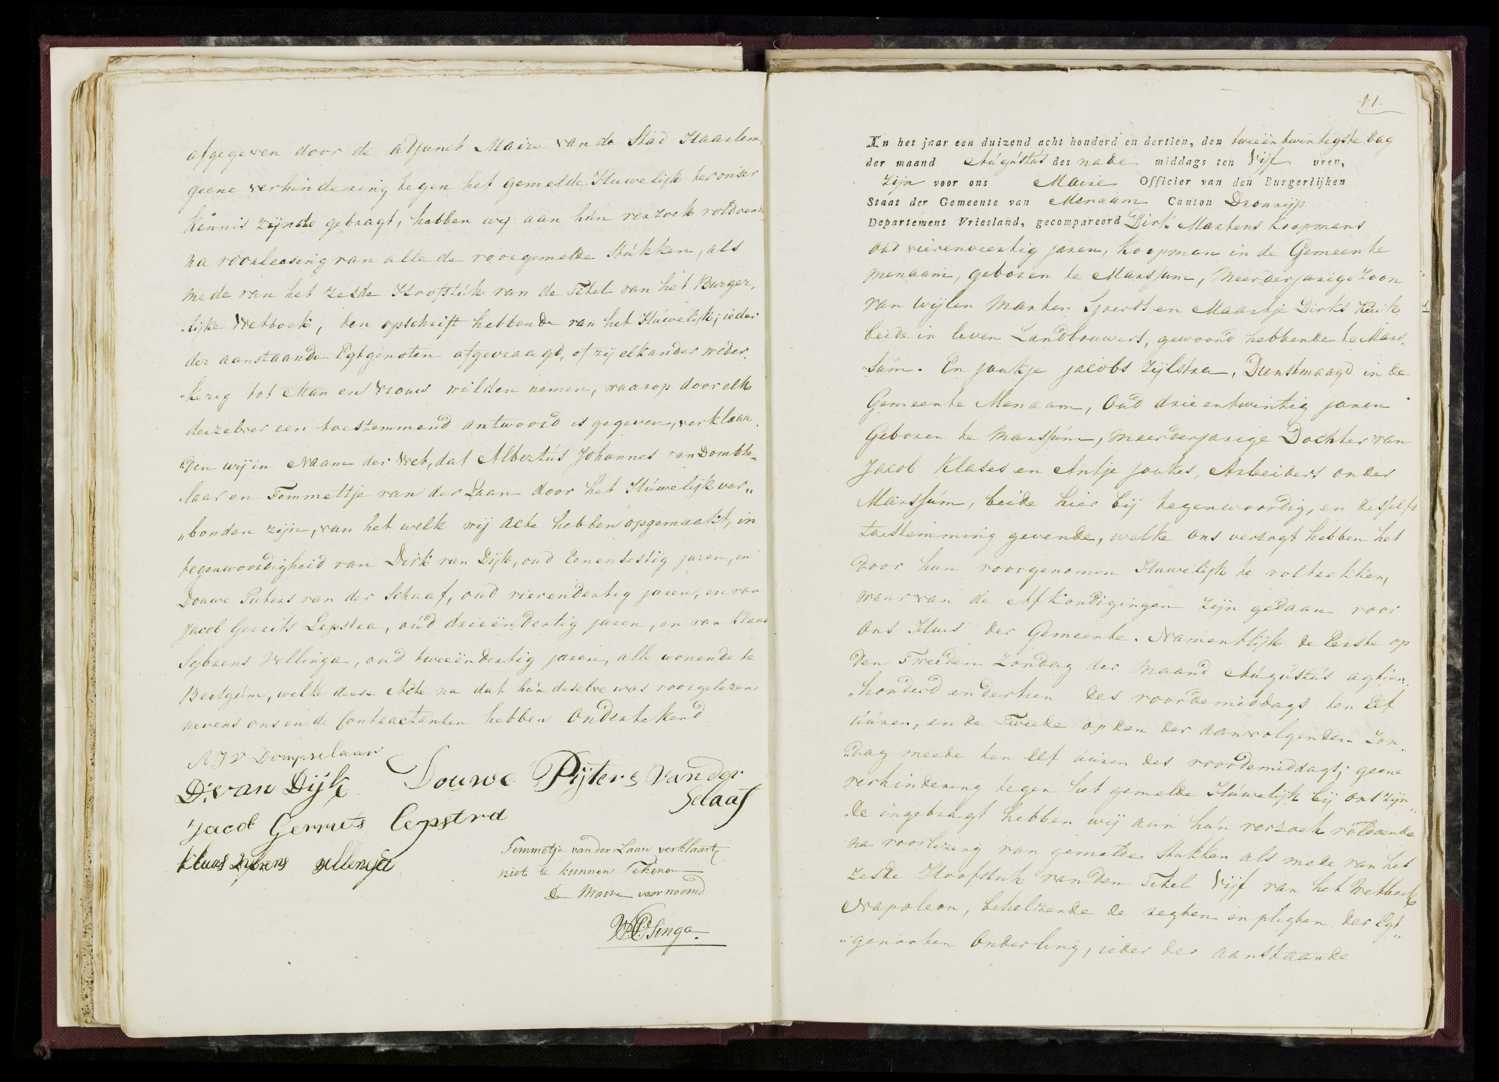 afgegeven door de adjunct Maire van de Stad Haarlem,
geene verhindering tegen het gemelde Huwelijk ter onser
kennis zijnde gebragt, hebben wij aan hun verzoek voldoende
na voorleesing van alle de voorgemelde Stukken, als
mede van het zesde Hoofstuk van de Titel van het Burger,
lijke Wetboek, ten opschrift hebbende van het Huwelijk, ieder
der aanstaande Egtgenoten afgevraagd, of zij elkander weder,
kerig tot Man en Vrouw wilden nemen, waarop door elk
derzelver een toestemmend antwoord is gegeven, verklaar,
den wij in Naam der Wet, dat Albertus Johannes van Domse
laar en Temmettje van der Laan door het Huwelijk ver,,
,,bonden zijn, van het welk wij acte hebben opgemaakt, in
tegenwoordigheid van Dirk van Dijk, oud Eenensestig jaren, en
Douwe Piters van der Schaaf, oud vierendertig jaren, en van
Jacob Gerrits Lepstra, oud drieëndertig jaren, en van Klaas
Sybrens Wellinga, oud tweeëndertig jaren, alle wonende te
Beetgum, welke deese Acte na dat hun deselve was voorgelezen
nevens ons en de Contractanten hebben Ondertekend
A J V Dompselaar
D. van Dijk Douwe Pijters van der
Schaaf
Jacob Gerrits Lepstra
Klaas Sybrens Wellenga
Temmetje van der Laan verklaart
niet te kunnen Tekenen
de Maire voornoemd
Osinga.
11.
In het jaar een duizend acht honderd en dertien, den tweeëntwintigste dag
der maand Augustus des nade middags ten Vijf uren,
Zijn voor ons Maire Officier van den Burgerlijken
Staat der Gemeente van Menaam Canton Dronrijp
Departement Vriesland, gecompareerd Dirk Martens Koopmans
oud vierenveertig jaren, koopman in de Gemeente
menaam, geboren te Marssum, meerderjarige Zoon
van wijlen Marten Sjoerds en Maartje Dirks
beide in leven Landbouwers, gewoond hebbende te Mars,
sum. En jantje jacobs Zijlstra, Dienstmaagd in de
Gemeente Menaam, Oud drieentwintig jaren
Geboren te Marssum, meerderjarige Dochter van
Jacob Klases en Antje joukes, Arbeiders onder
Marssum, beide hier bij tegenwoordig, en deszelfs
toestemming gevende, welke ons versogt hebben het
door hun voorgenomen Huwelijk te voltrekken,
waarvan de Afkondigingen zijn gedaan voor
ons Huis der Gemeente. Namentlijk de Eerste op
den Tweeden Zondag der maand Augustus agtien,
honderd en dertien des voordemiddags ten Elf
uuren, en de Tweede op den der aanvolgenden Zon,
dag meede ten Elf uuren des voordemiddags, geene
verhindering tegen het gemelde Huwelijk bij ons zijn,,
de ingebragt hebben wij aan hun verzoek voldoende
na voorlezing van gemelde Stukken als mede van het
zesde Hoofstuk van den Titel Vijf van het Wetboek
Napoleon, behelzende de regten en pligten der Egt
,,genooten Onderling, ieder der aanstaande